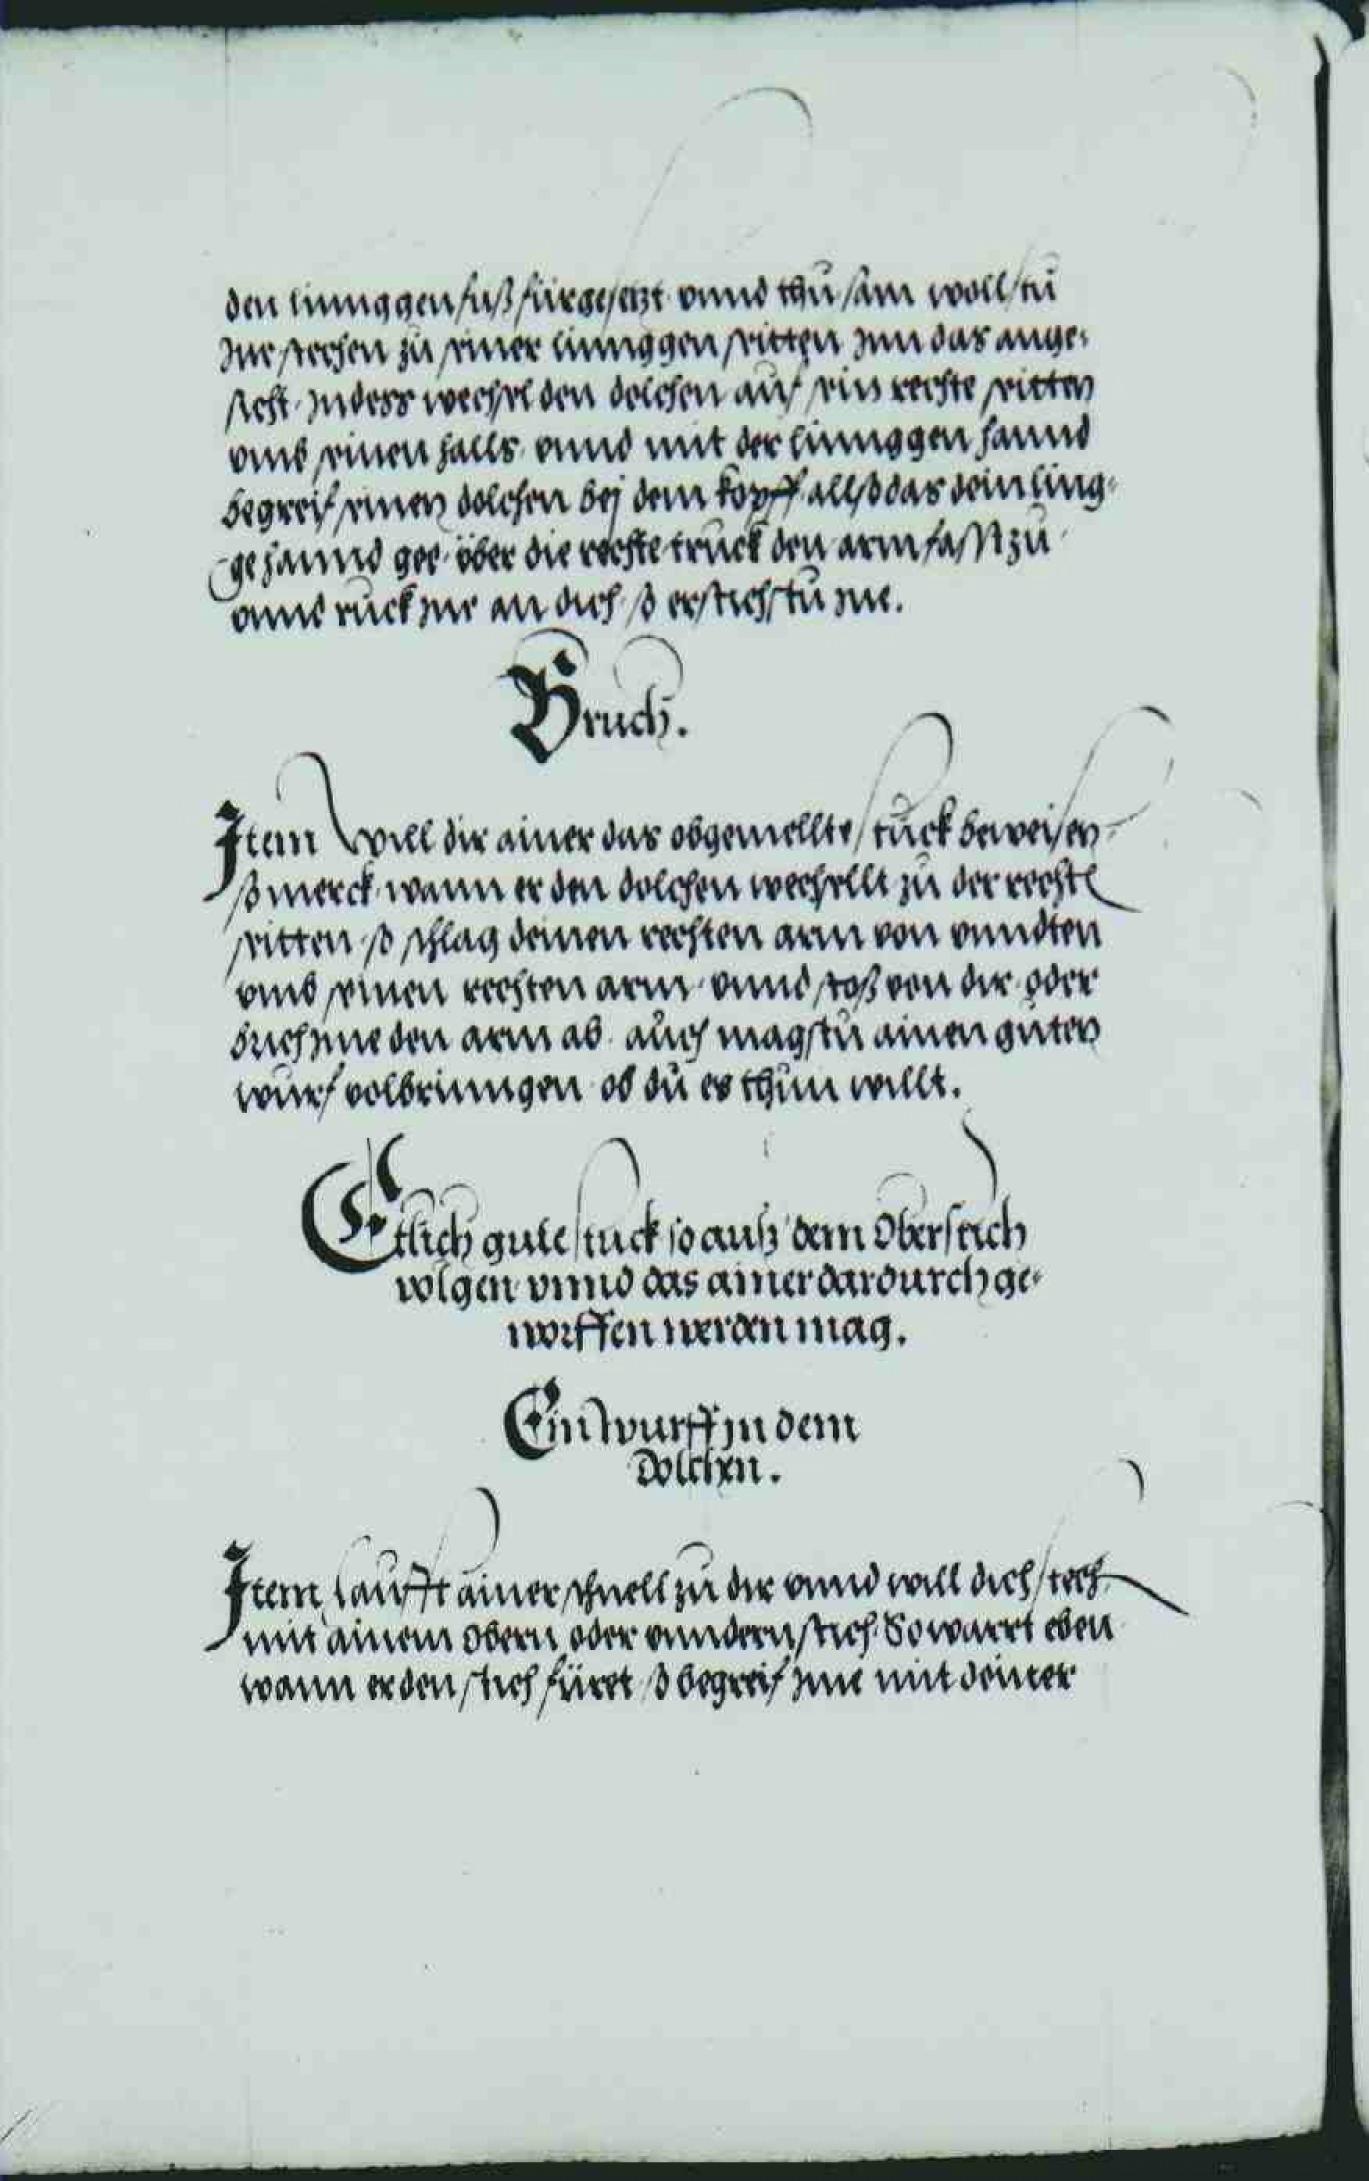 den linnggen fuß fürgesetzt. vnnd thu sam wollstu
Ime stechen zu seiner linnggen seitten Inn das ange-
sicht. Indess wechsel den dolchen auf sein rechte seitten
vmb seinen halls. vnnd mit der linnggen hannd
begreif seinen dolchen bej dem kopff. allso das dein ling-
ge hannd gee. über die rechte truck den arm fasst zu.
vnnd ruck Ine an dich. so erstichstu Ine.
Bruch.
Item Will dir ainer das obgemellte stuck beweisen.
so merck. wann er den dolchen wechsellt zu der recht
seitten. so schlag deinen rechten arm von vnndten
vmb seinen rechten arm. vnnd stoß von dir. oder
brich Ime den arm ab. auch magstu ainen guten
wurf volbrinngen. ob du es thun willt.
Etlich gute stuck so auß dem Oberstich
volgen. vnnd das ainer dardurch ge-
worffen werden mag.
Ein Wurff In dem
Dolchen.
Item. Laufft ainer schnell zu dir vnnd will dich stech.
mit ainem Obern. oder vnndern stich. So wart eben
wann er den stich füret. so begreif Ime mit deiner